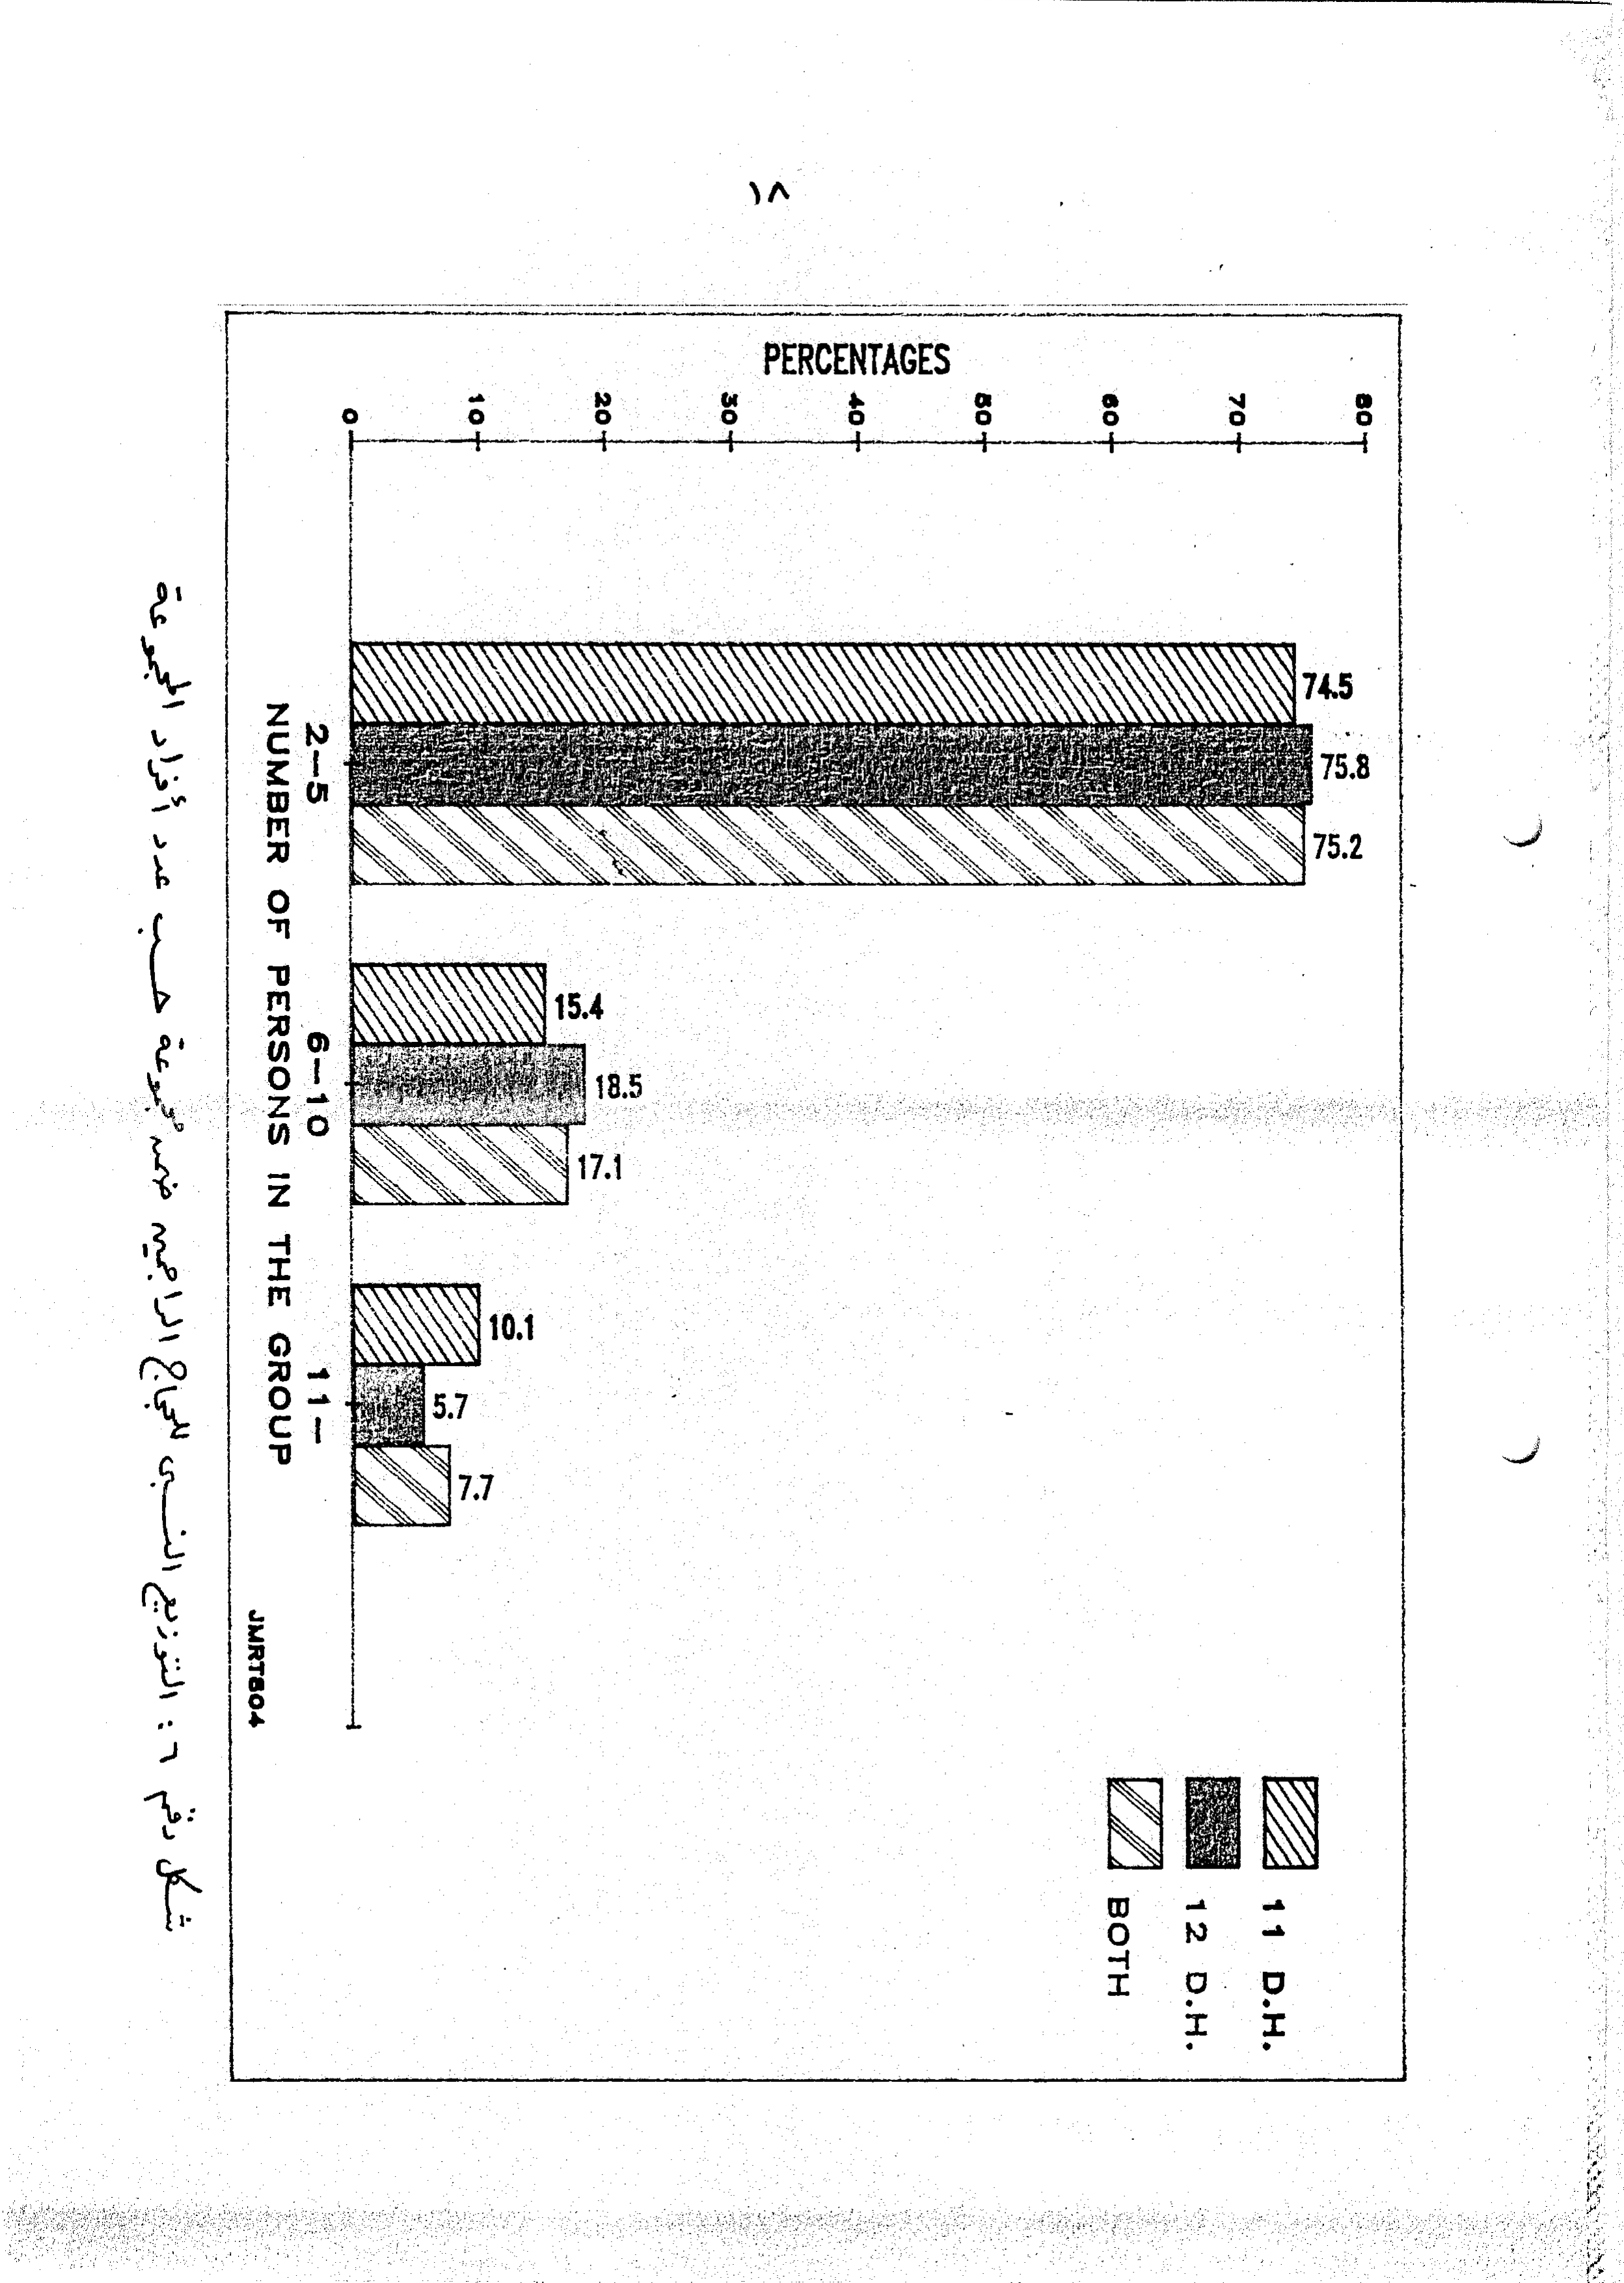 ١٨
PERCENTAGES
80
70
60
50
40
30
20
10
0
74.5
75.8
75.2
15.4
18.5
17.1
10.1
5.7
7.7
2-5
6-10
11-
NUMBER OF PERSONS IN THE GROUP
11 D.H.
12 D.H.
BOTH
JMRT804
شكل رقم ٦ : التوزيع النسبى للحجاج الراجعين ضمن مجموعة حسب عدد أفراد المجموعة